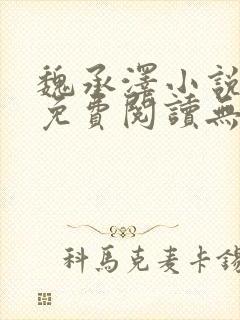 魏承澤小說
免費閱讀無
科馬克麦卡錫